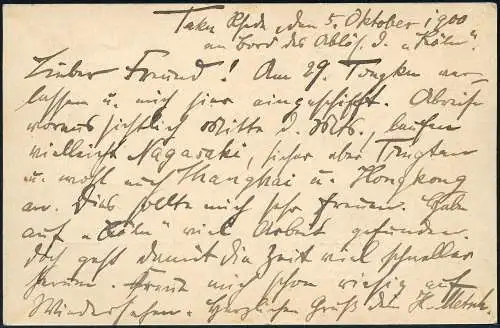 Taku Rhede, den 5. Oktober 1900
an Bord des Ablös. D. „Köln".
Lieber Freund! Am 29. Tongku ver-
lassen u. mich hier eingeschifft. Abreise
voraussichtlich Mitte d. Mts., laufen
vielleicht Nagasaki, sicher aber Tsingtau
u. wohl auch Shanghai u. Hongkong
an. Dies sollte mich sehr freuen. Habe
auf „Köln" viel Arbeit gefunden.
Doch geht damit die Zeit viel schneller
herum. Freue mich schon riesig auf
Wiedersehen. Herzlichen Gruß Dein H.